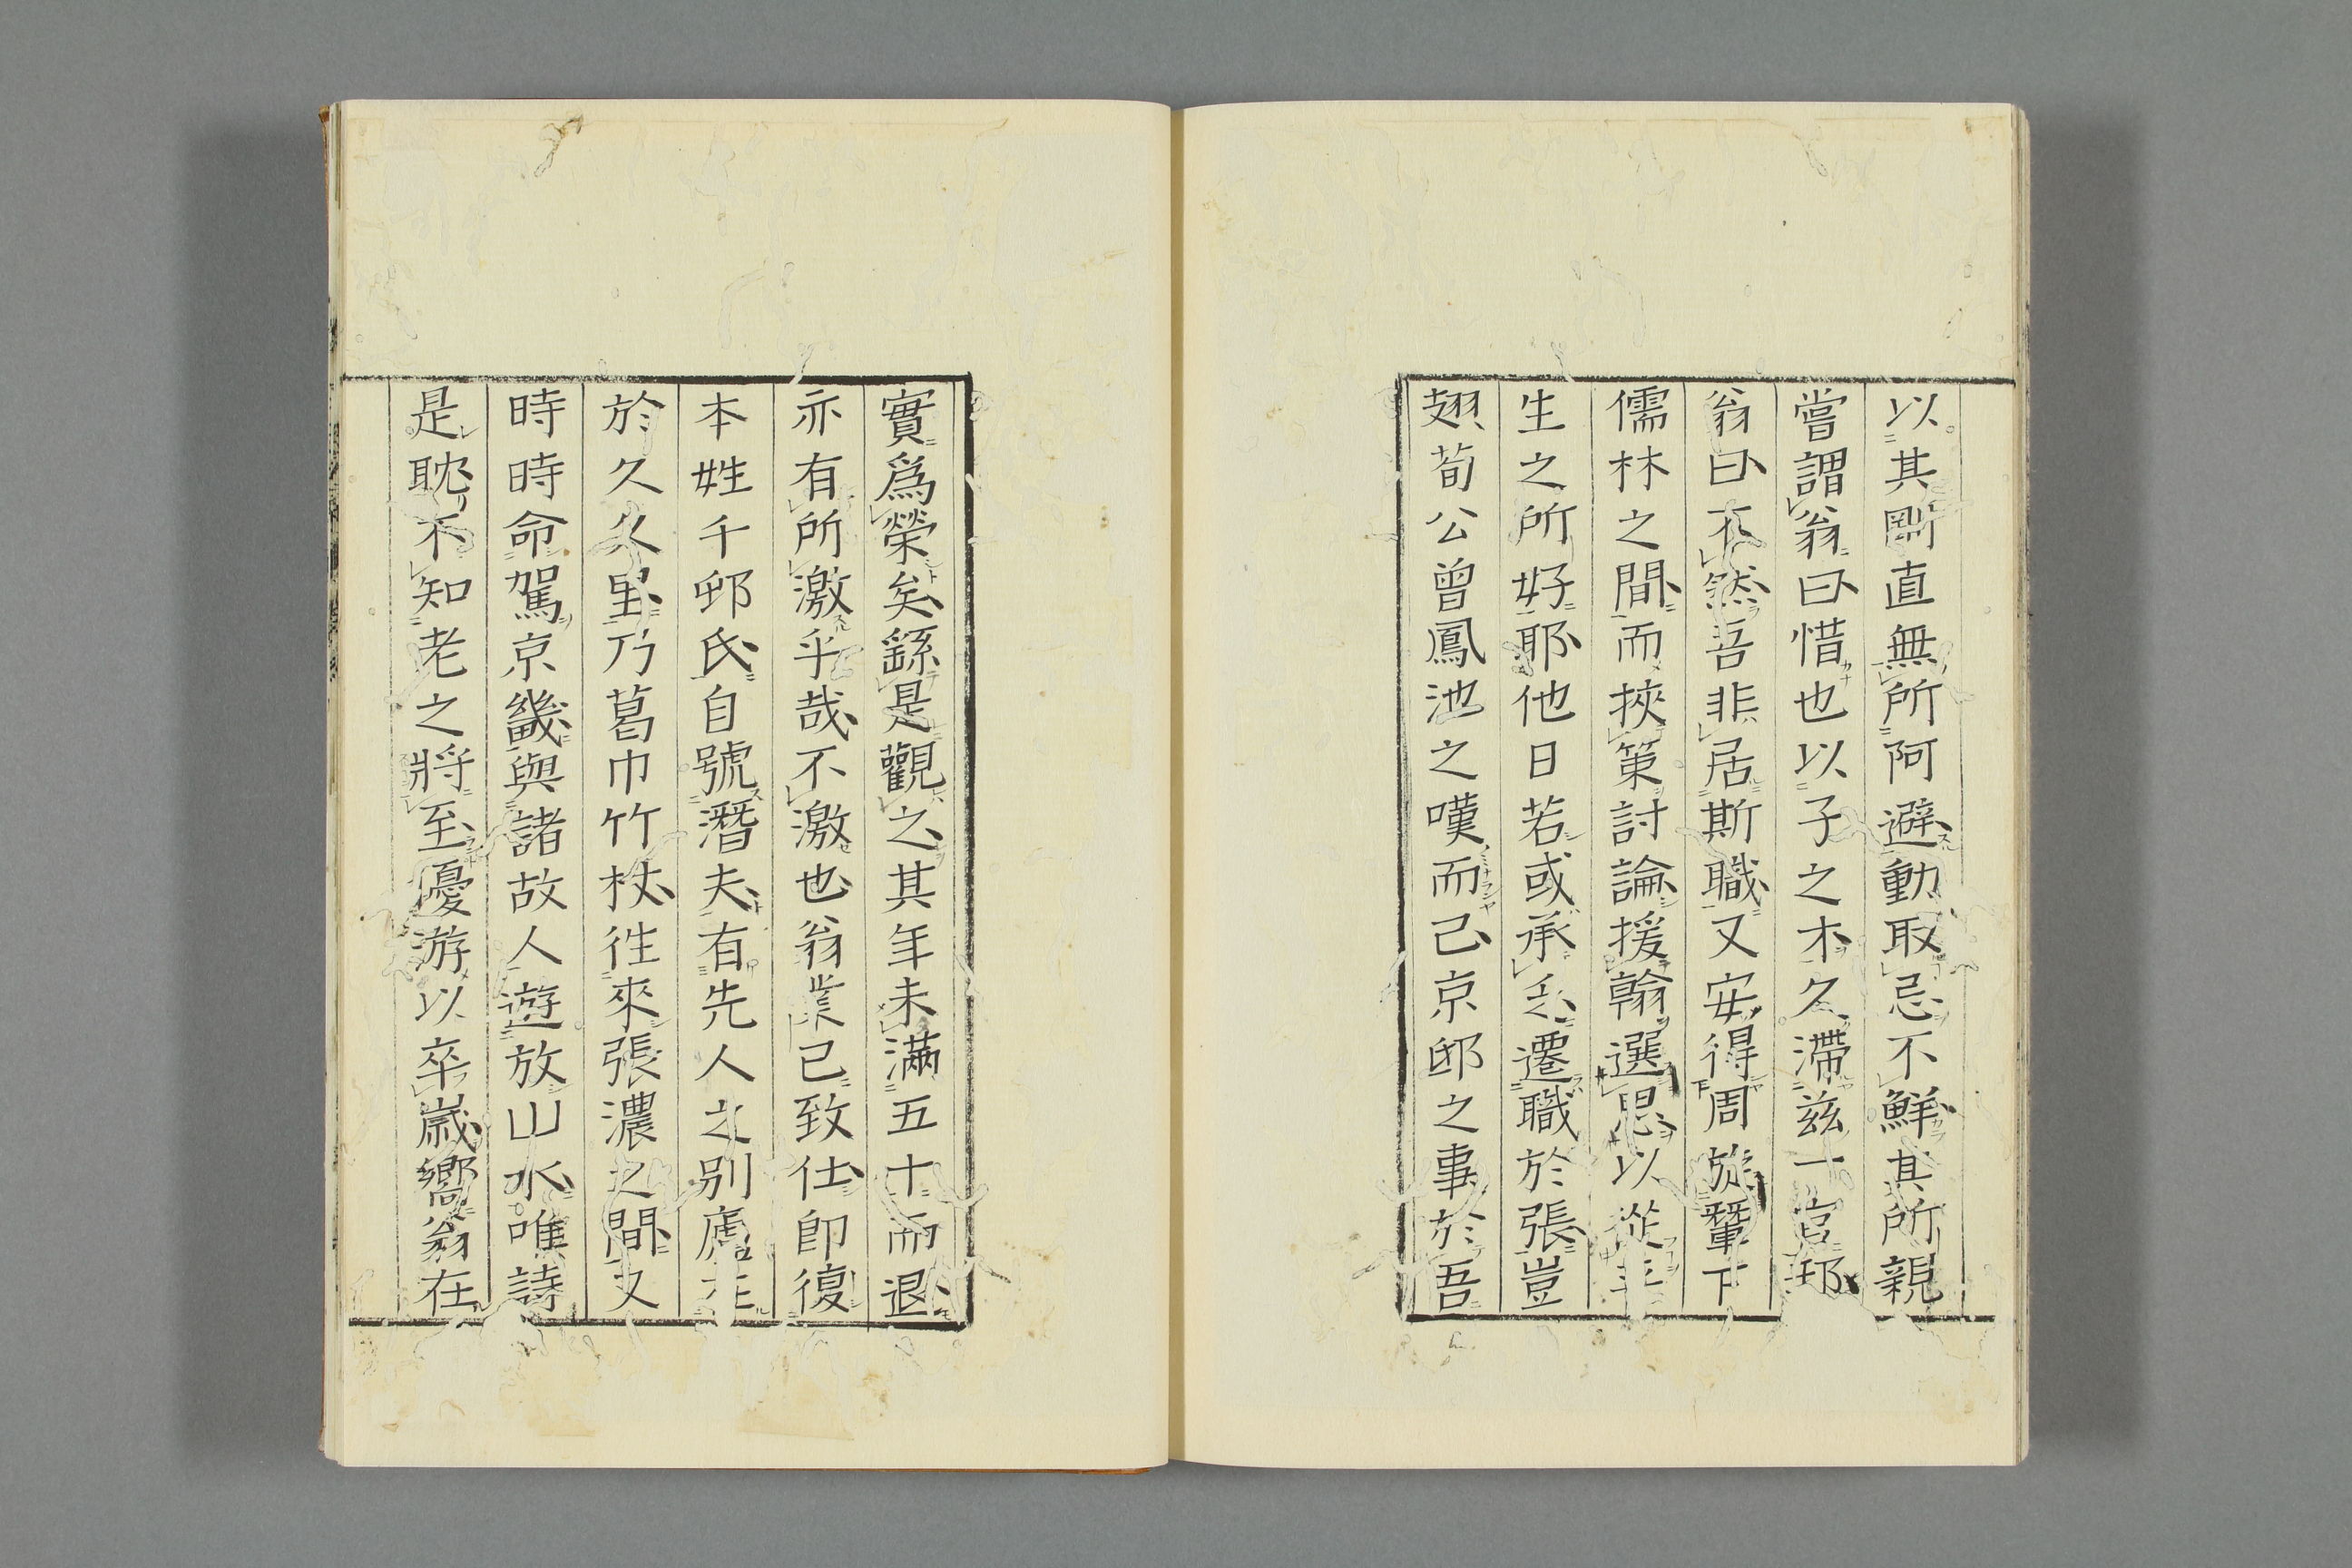 以其剛直無所阿避動取忌不鮮其所親
嘗謂翁曰惜也以子之木久滯茲一官邪
翁曰不然吾非居斯職又安得周旋輦下
儒林之間而挾策討論援翰選思以從
生之所好耶他日若或承乏遷職於張豈
翅荀公曾鳳池之嘆而己京邸之事於吾
實爲榮矣繇是觀之其年未滿五十而退
亦有所激乎哉不激也翁業已致仕卽復
本姓千邨氏自號潛夫有先人之別廬在
於久久里乃葛巾竹杖徃來張濃之間又
時時命駕京畿與諸故人遊放山水唯詩
是耽不知老之將至優游以卒嵗嚮翁在